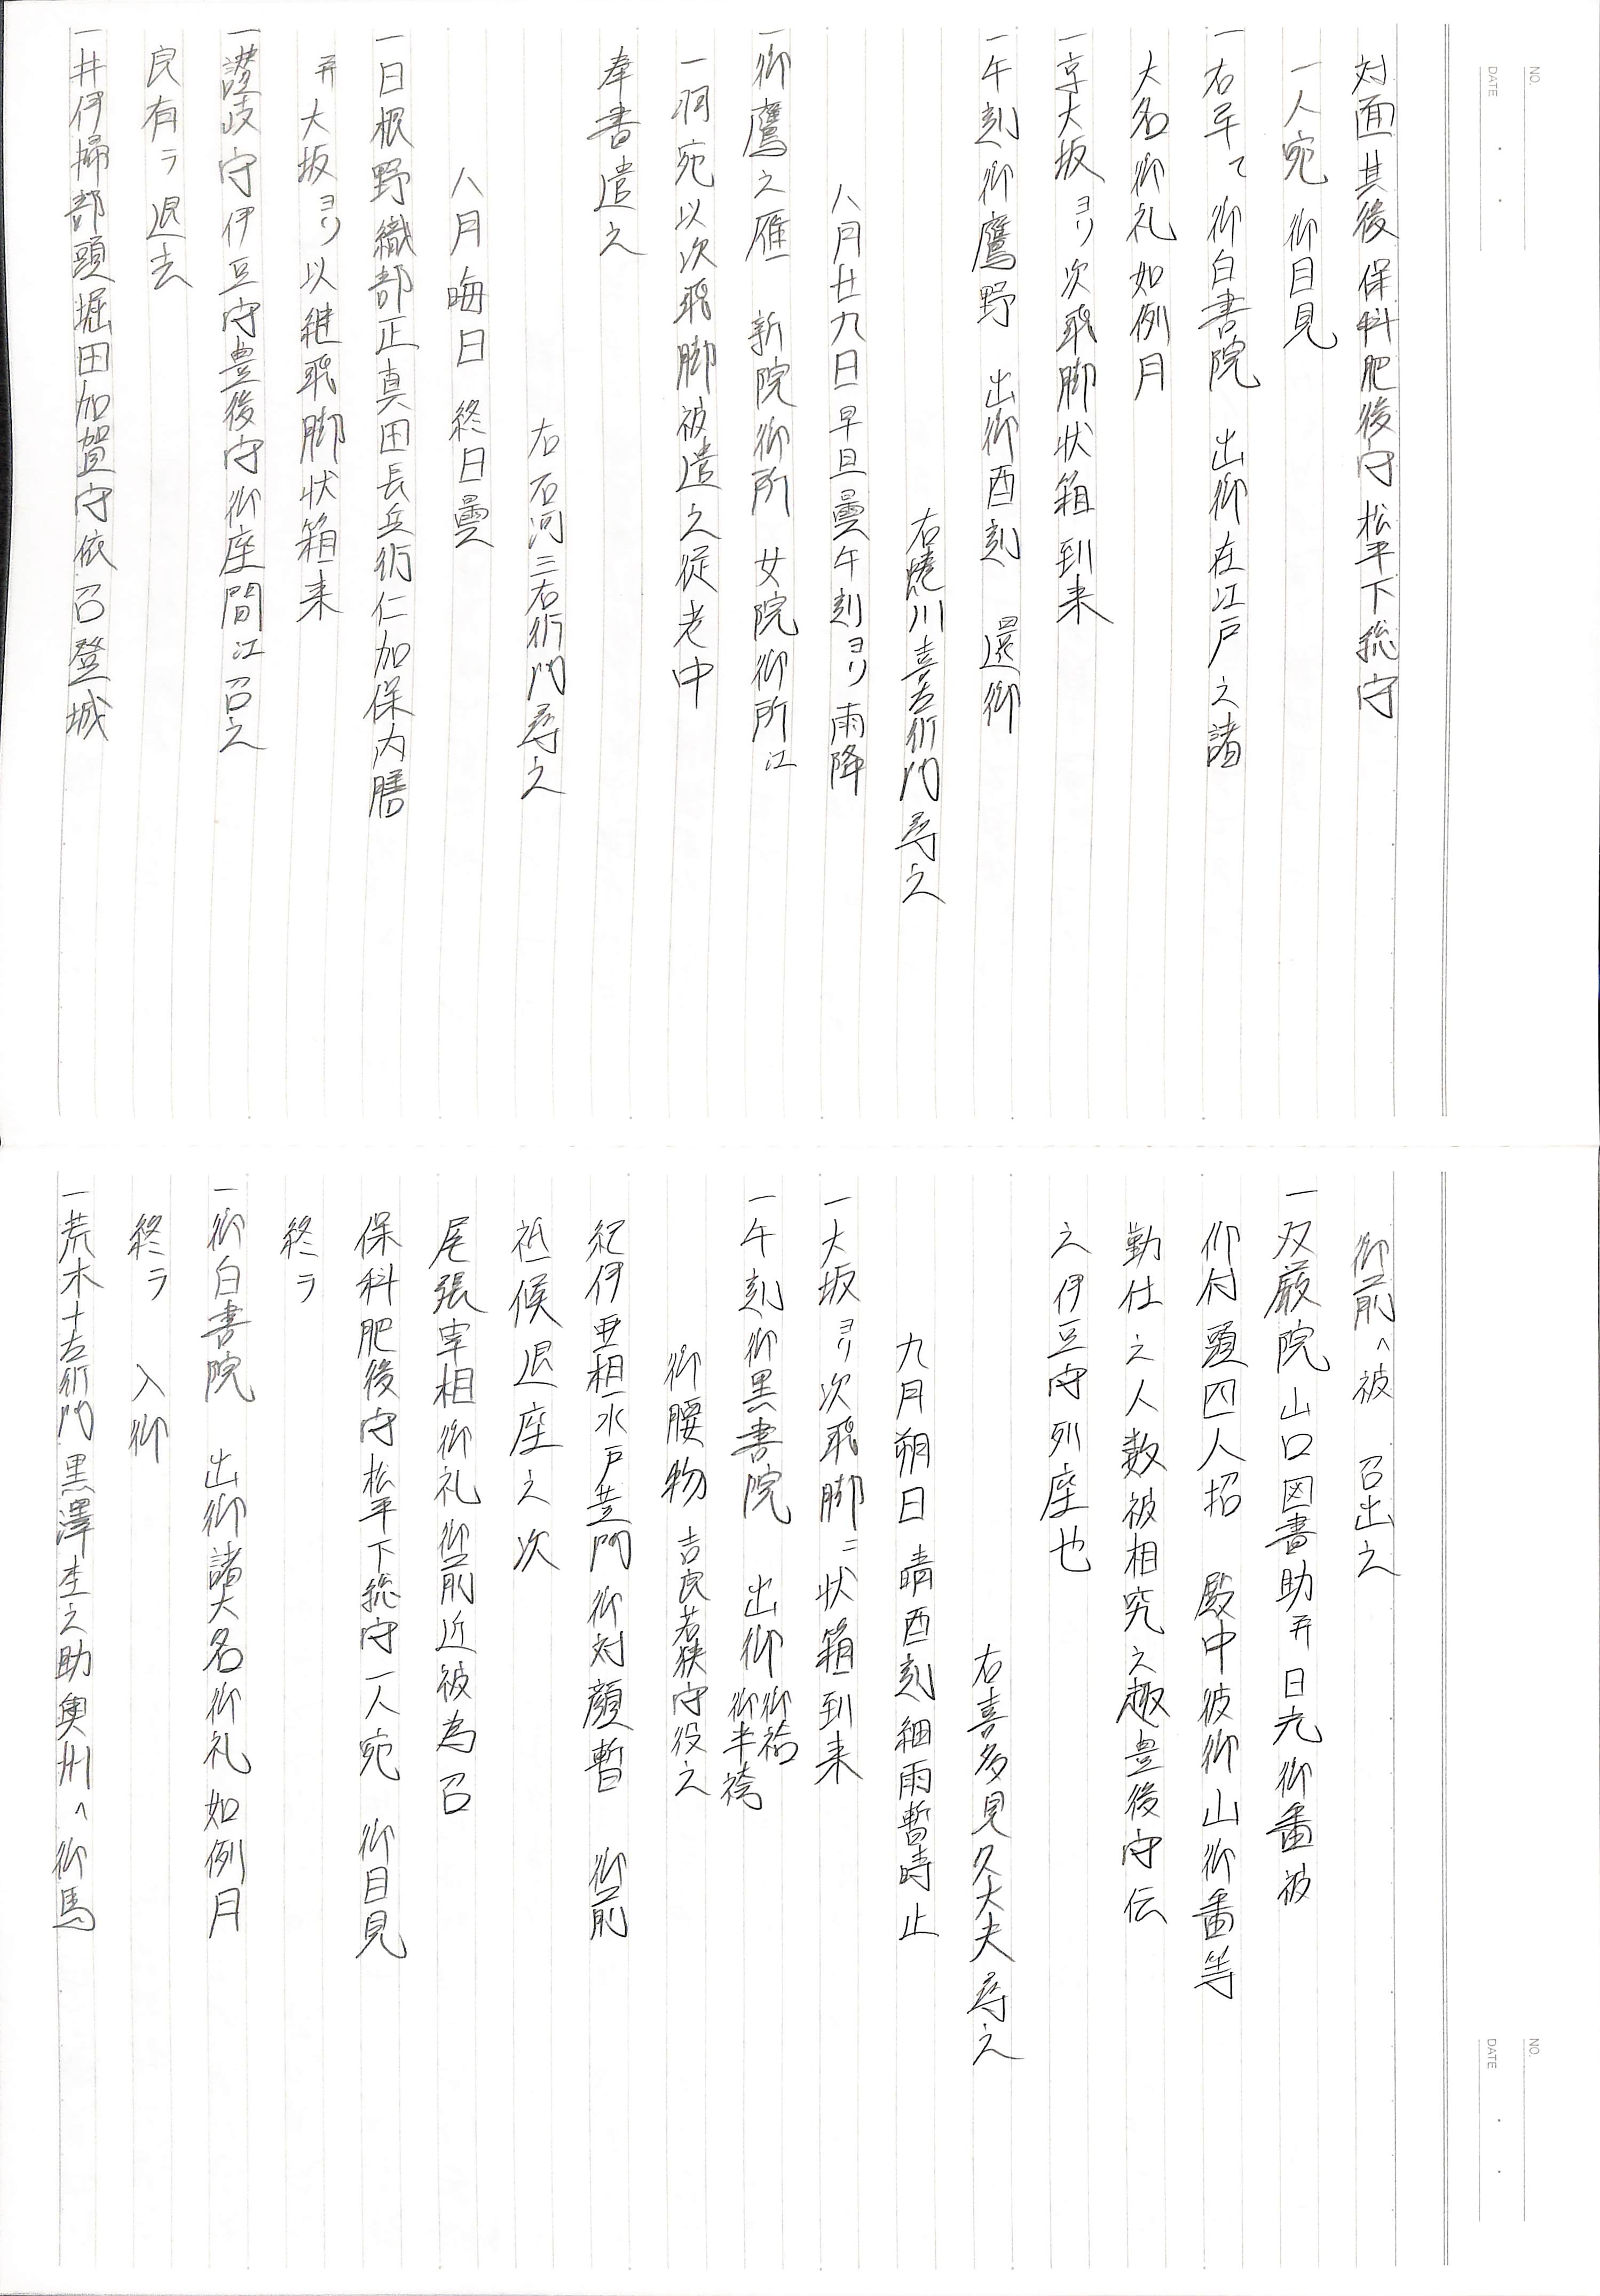 対面其後保科肥後守松平下総守
一人宛 御目見
一右畢て御白書院 出御在江戸之諸
大名御礼如例月
一京大坂ヨリ次飛脚状箱到来
一午刻御鷹野 出御酉刻 還御
右焼川喜左衛門尋之
八月廿九日早旦曇午刻ヨリ雨降
一御鷹之雁 新院御所 女院御所江
一羽宛以次飛脚被遣之従老中
奉書遣之
右石河三右衛門尋之
八月晦日 終日曇
一日根野織部正真田長兵衛仁加保内膳
并大坂ヨリ以継飛脚状箱来
一讃岐守伊豆守豊後守御座間江召之
良有テ退去
一井伊掃部頭堀田加賀守依召登城
御前へ被 召出之
一双厳院山口図書助并日光御番被
仰付頭四人招 殿中彼御山御番等
勤仕之人数被相究之趣豊後守伝
之伊豆守列座也
右喜多見久大夫尋之
九月朔日 晴酉刻細雨暫時止
一大坂ヨリ次飛脚ニ状箱到来
一午刻御黒書院 出御 御裃 御半袴
御腰物 吉良若狭守役之
紀伊亜相水戸黄門御対顔暫 御前
祗候退座之次
尾張宰相御礼御前近被為召
保科肥後守松平下総守一人宛 御目見
終テ
一御白書院 出御諸大名御礼如例月
終テ 入御
一荒木十左衛門黒澤杢之助奥州へ御馬